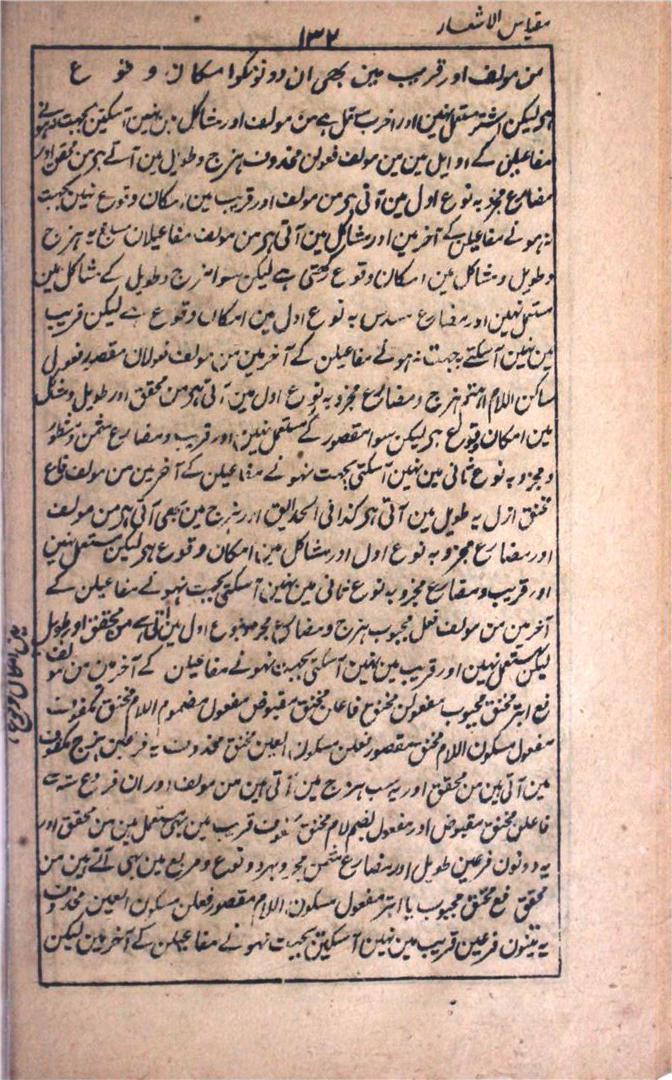 مقیاس الاشعار
۱۳۲
من مولف اور قریب مین بھی ان دونونکو امکان و قوع
ہی لیکن اشتر مستعمل نہین اور اخرب مستعمل ہے من مولف اور مشاکل مین نہین آسکتین بجہت نہونے
مفاعیلن کے اوایل مین من مولف فعولن محذوف ہزج و طویل مین آتے ہی من محقق اور
مضارع مجزو بہ نوع اول مین آتی ہی من مولف اور قریب مین امکان وقوع نہین بجہت
نہونے مفاعیلن کے آخر مین اور مشاکل مین آتی ہی من مولف مفاعیلان مسبغ یہ ہزج
و طویل و مشاکل مین امکان وقوع رکھتی ہے لیکن سوا ہزج و طویل کے مشاکل مین
مستعمل نہین اور مضارع مسدس بہ نوع اول مین امکان وقوع ہے لیکن قریب
مین نہین آسکتے بجہت نہونے مفاعیلن کے آخر مین من مولف فعولان مقصور فعول
ساکن اللام ہزج و مضارع مجزو بہ نوع اول مین آتی ہی من محقق اور طویل و مشاکل
مین امکان وقوع ہی لیکن سوا مقصور کے مستعمل نہین اور قریب و مضارع مثمن و مشطور
و مجزو بہ نوع ثانی مین نہین آسکتی بجہت نہونے مفاعیلن کے آخر مین من مولف فاع
مخنق ازل یہ طویل مین آتی ہی کذا فی الحدایق اور ہزج مین بھی آتی ہی من مولف
اور مضارع مجزو بہ نوع اول اور مشاکل مین امکان وقوع ہی لیکن مستعمل نہین
اور قریب و مضارع مجزو بہ نوع ثانی مین نہین آسکتی بجہت نہونے مفاعیلن کے
آخر مین من مولف فعل مجبوب ہزج و مضارع مجزو بنوع اول مین آتی ہے من محقق اور طویل
لیکن مستعمل نہین اور قریب مین نہین آسکتی بجہت نہونے مفاعیلن کے آخر مین من مولف
فع ابتر مخنق مجبوب مفعولن مخنق فاعلن مخنق مقبوض مفعول مضموم اللام مخنق مکفوف
مفعول مسکون اللام مخنق مقصور فعلن مسکون العین مخنق محذوف یہ فرعین ہزج مکفوف
مین آتی ہین من محقق اور یہ سب ہزج مین آتی ہین من مولف اور ان فروع ستہ سے
فاعلن مخنق مقبوض اور مفعول بضم لام مخنق مکفوف قریب مین بھی مستعمل ہین من محقق اور
یہ دونون فرعین طویل اور مضارع مثمن مجزو بہر دو نوع و مربع مین بھی آتے ہین من
محقق فع مخنق مجبوب یا ابتر مفعول مسکون اللام مقصور فعلن مسکون العین محذوف
یہ تینون فرعین قریب مین نہین آسکتین بجہت نہونے مفاعیلن کے آخر مین لیکن